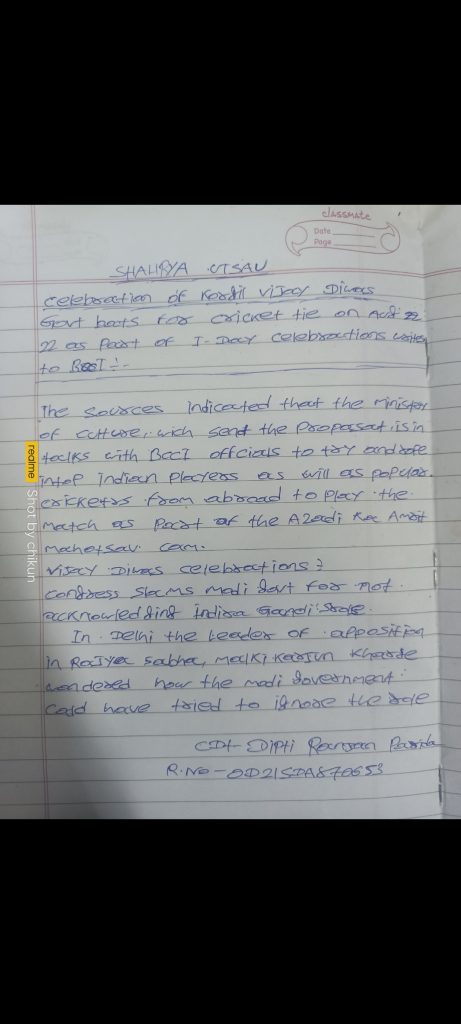 classmate
Date
Page
SHAURYA UTSAV
celebration of Kargil Vijay Diwas
Govt bats for cricket tie on Aug 22
22 as Part of I-Day celebrations writes
to BCCI :-
The sources indicated that the ministry
of culture, wich send the Proposal is in
talks with BCCI offcials to try and rope
in top Indian Players as will as popular
cricketrs from abroad to Play the
match as Part of the Azadi Ka Amrit
mahotsav cam.
Vijay Diwas celebrations :
congress slams modi govt for not
acknowledging indira Gandi's role.
In Delhi the Leader of opposition
in Rajya sabha, malki karjun kharge
wondered how the modi government
cald have tried to ignore the role
CDT- Dipti Ranjan Parida
R.No - OD21SDA870653
realme Shot by chikun